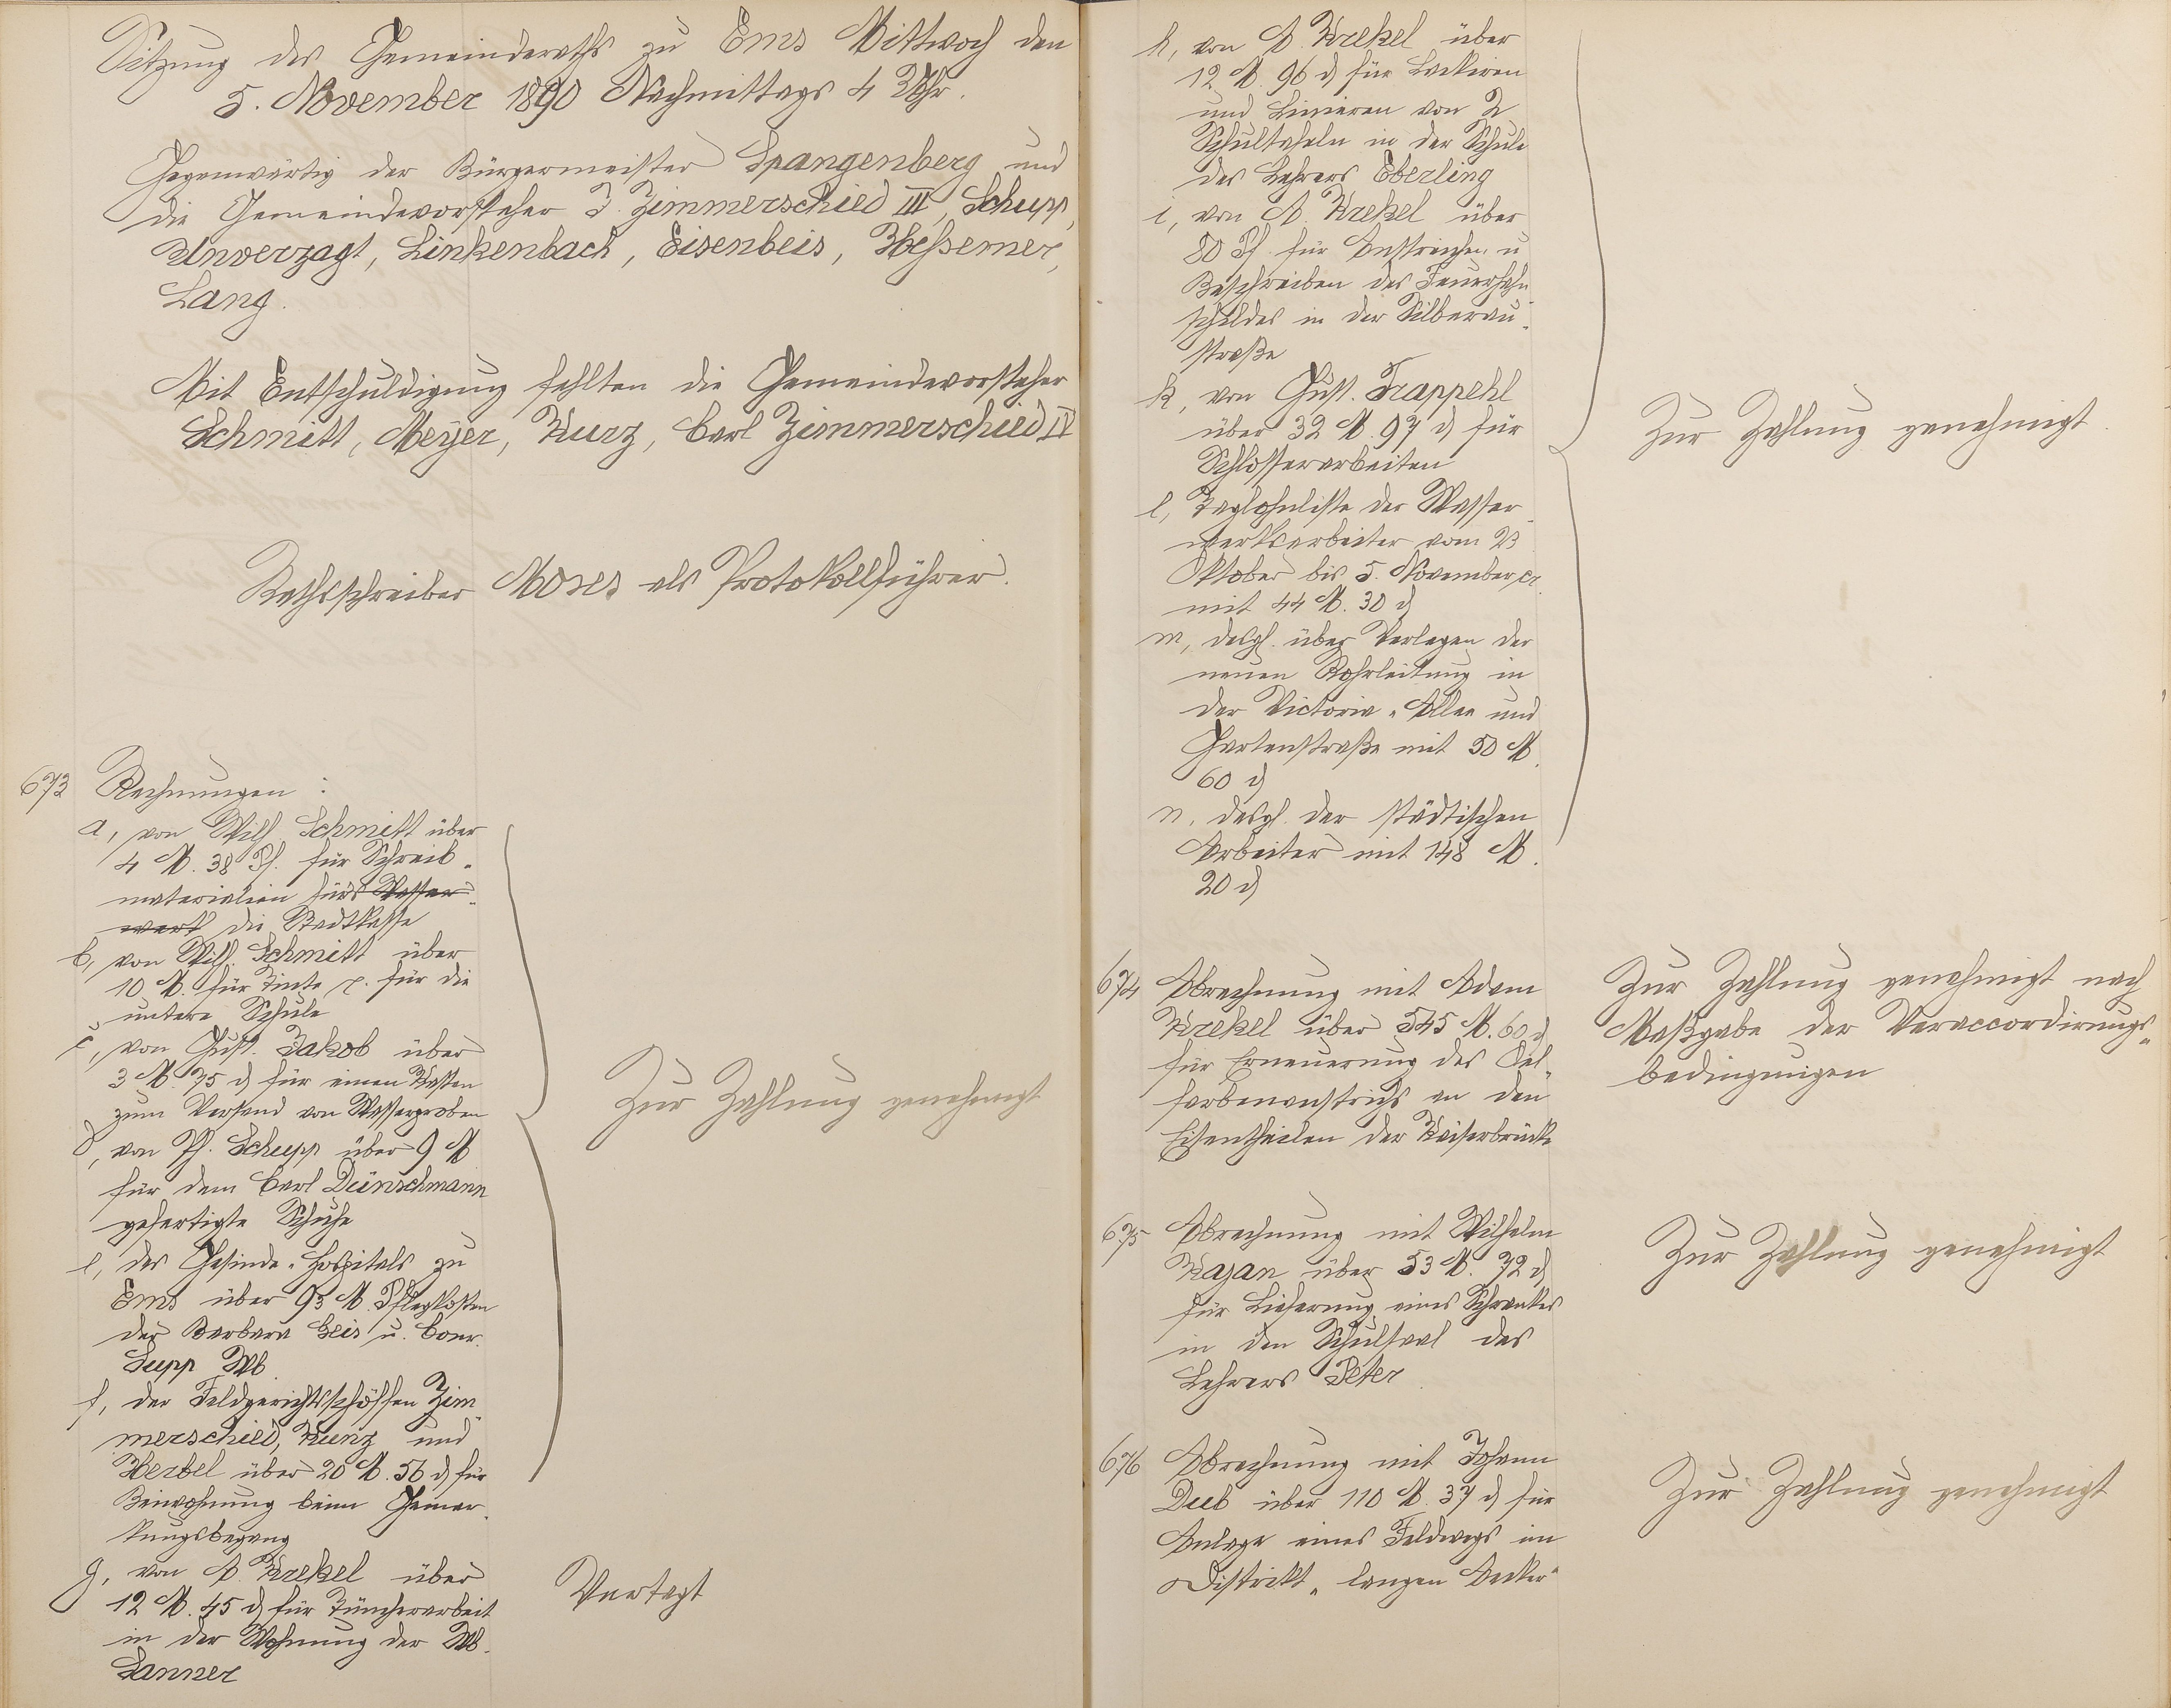 Sitzung des Gemeinderaths zu Ems Mittwoch den
5. November 1890 Nachmittags 4 Uhr.
Gegenwärtig der Bürgermeister Spangenberg und
die Gemeindevorsteher J. Zimmerschied III, Schupp,
Unverzagt, Linkenbach, Eisenbeis, Heßemer,
Lang.
Mit Entschuldigung fehlten die Gemeindevorsteher
Schmitt, Meyer, Kurz, Carl Zimmerschied IV
Rathsschreiber Moses als Protokollführer.
673 Rechnungen:
a, von Wilh. Schmitt über
4 M. 38 Pf. für Schreib-
materialien fürs Wasser-
werk die Stadtkasse
b, von Wilh. Schmitt über
10 M. für Tinte p. für die
untere Schule
c, von Gust. Jakob über
3 M. 75 d für einen Kasten
zum Versand von Wasserproben
d, von Ph. Schupp über 9 M
für dem Carl Dünschmann
gefertigte Schuhe
e, des Gesinde-Hospitals zu
Ems über 93 M. Pflegkosten
der Barbara Geis u. Conr.
Supp Wb
f, der Feldgerichtsschöffen Zim-
merschied, Kunz und
Herbel über 20 M. 56 d für
Beiwohnung beim Gemar-
kungsbegang
Zur Zahlung genehmigt
g, von A. Krekel über
12 M. 45 d für Tüncherarbeit
in der Wohnung der Wb.
Sanner
Vertagt
h, von A. Krekel über
12 M. 96 d für Lackiren
und Liniren von 2
Schultafeln in der Schule
des Lehrers Eberling
i, von A. Krekel über
80 Pf. für Anstreichen u
Beschreiben des Feuerhahn-
schildes in der Silberau-
straße
k, von Gust. Trappehl
über 32 M. 97 d für
Schlosserarbeiten
l, Taglohnliste der Wasser-
werksarbeiter vom 23
Oktober bis 5. November cr.
mit 44 M. 30 d
m, desgl. über Verlegen der
neuen Rohrleitung in
der Victoria-Allee und
Gartenstraße mit 50 M.
60 d
n, desgl. der städtischen
Arbeiter mit 148 M.
20 d
Zur Zahlung genehmigt.
674 Abrechnung mit Adam
Krekel über 545 M. 60 d
für Erneuerung des Oel-
farbenanstrichs an den
Eisentheilen der Kaiserbrücke
Zur Zahlung genehmigt nach
Maßgabe der Veraccordirungs-
bedingungen
675 Abrechnung mit Wilhelm
Kajan über 53 M. 72 d
für Lieferung eines Schrankes
in den Schulsaal des
Lehrers Peter
Zur Zahlung genehmigt
676 Abrechnung mit Johann
Deeb über 110 M. 37 d für
Anlage eines Feldwegs im
Distrikt „langen Aecker"
Zur Zahlung genehmigt